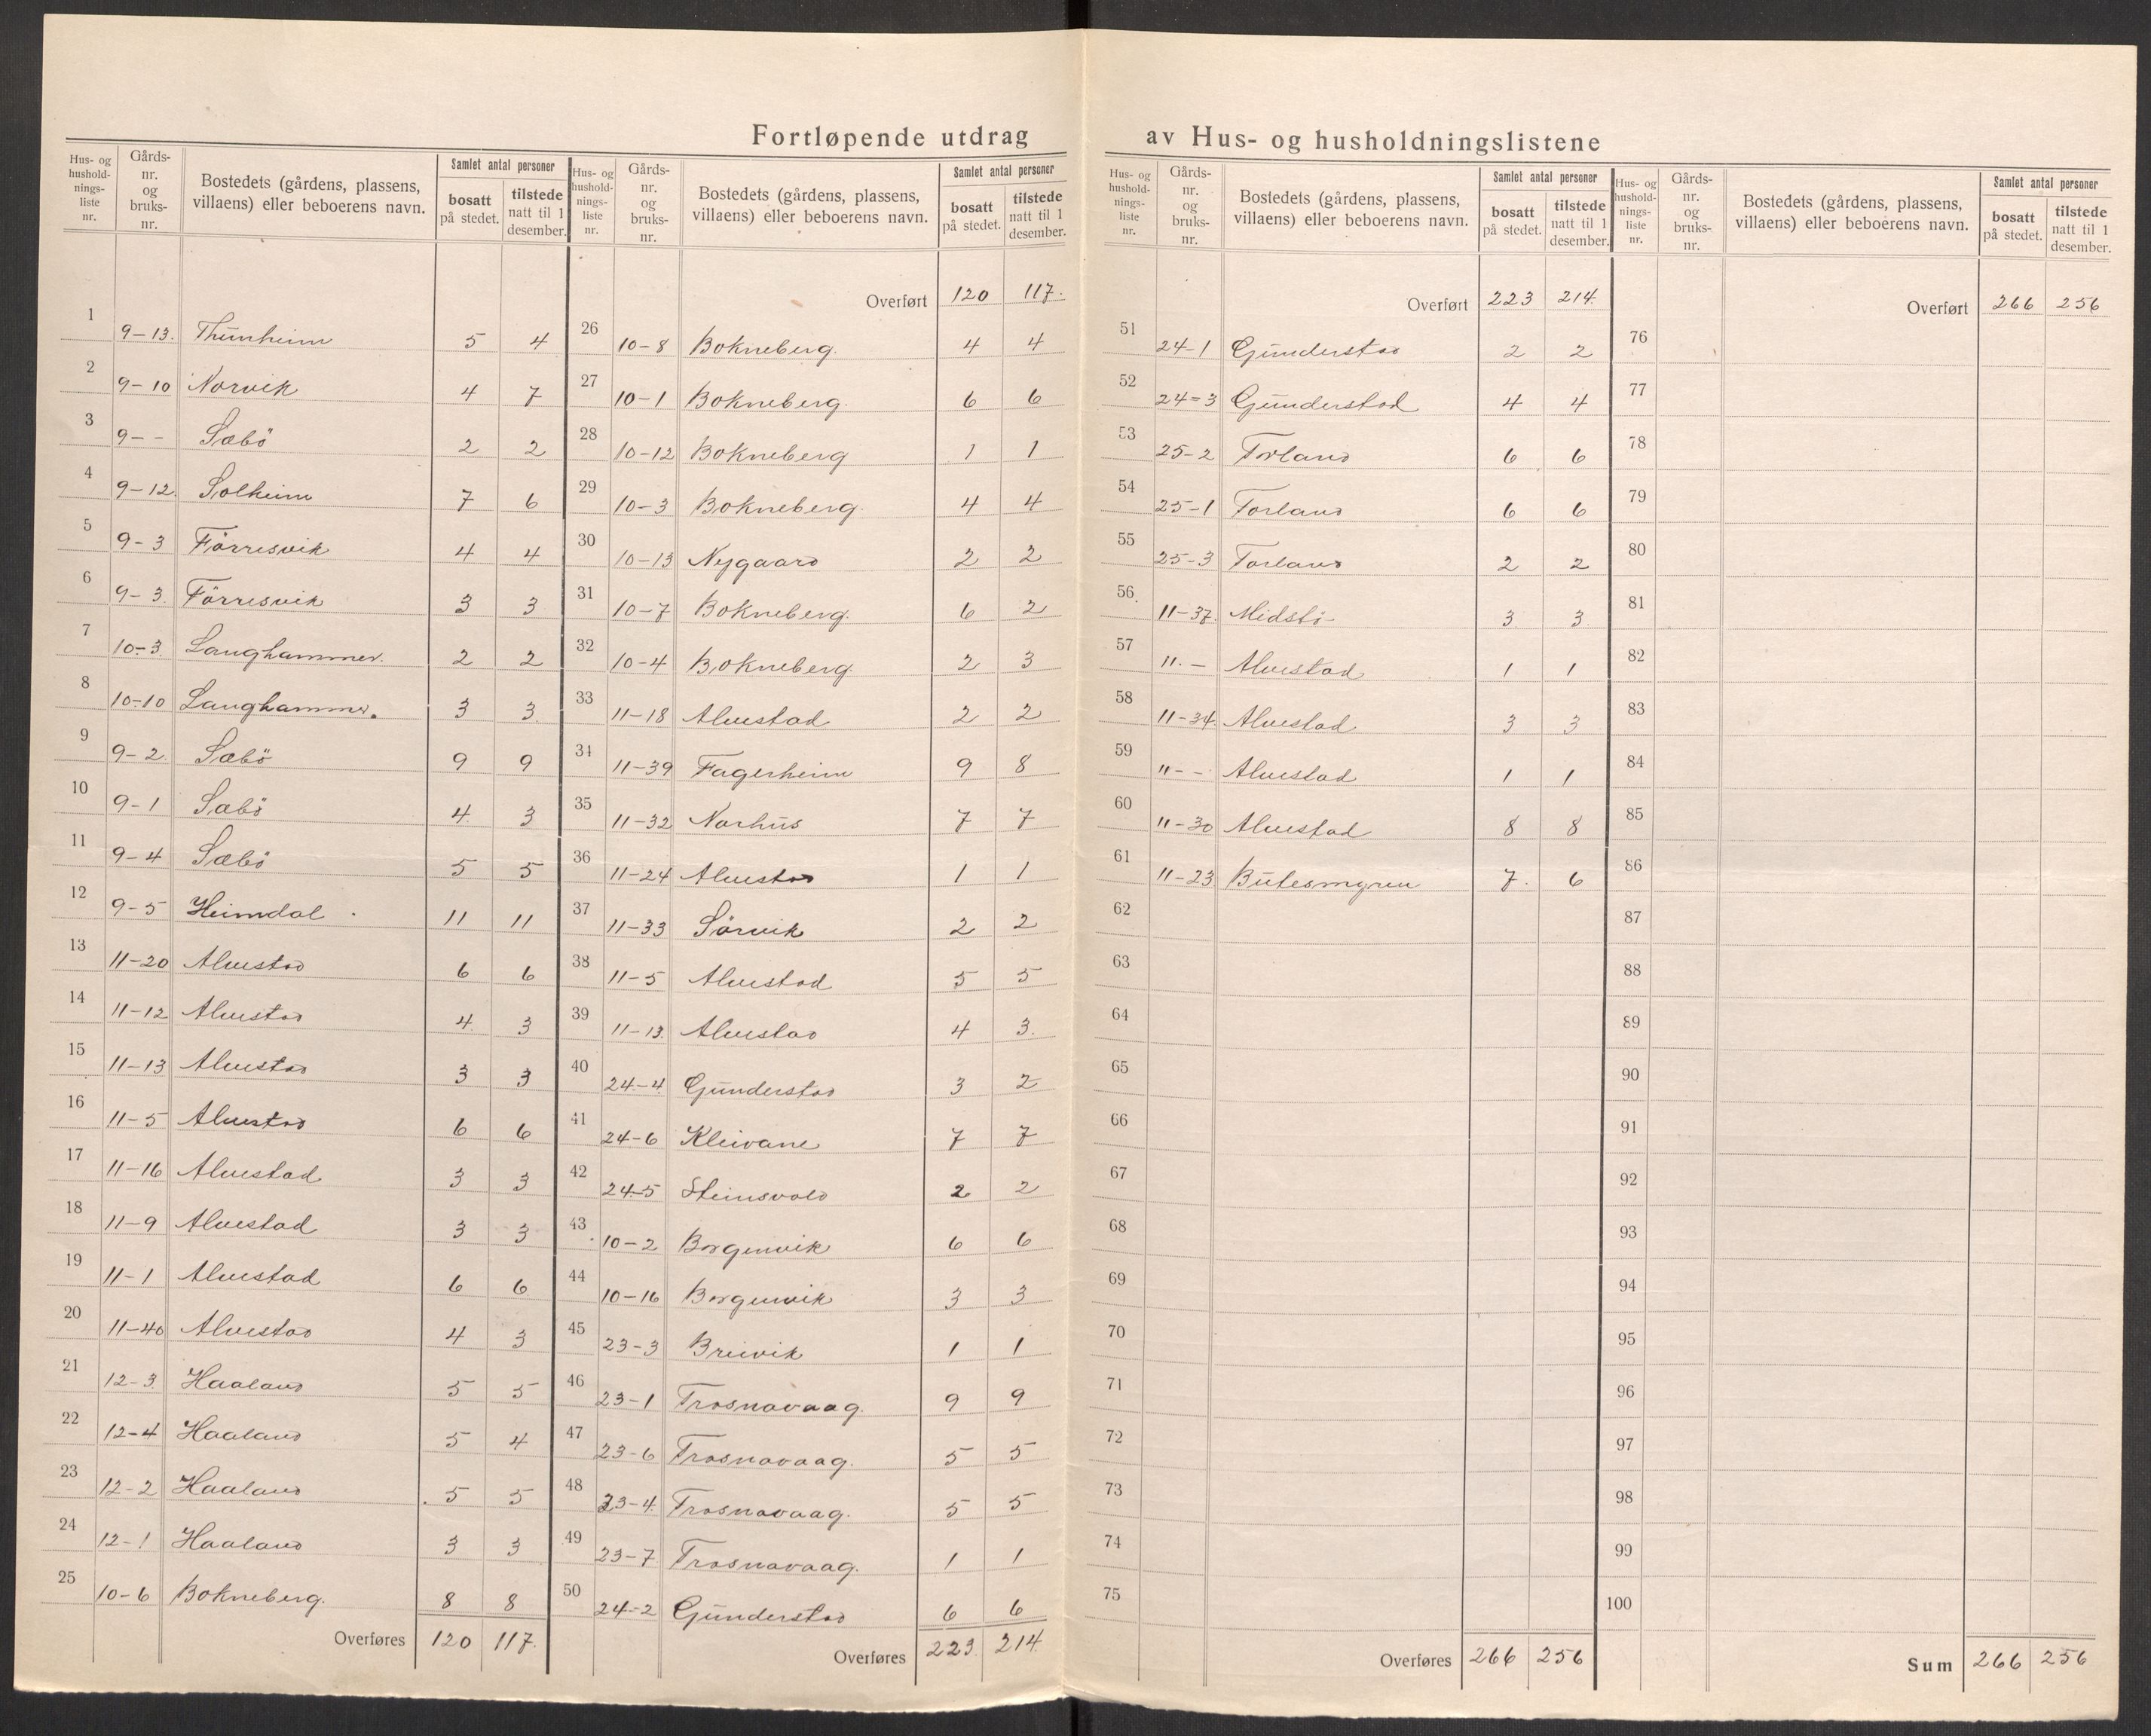 Fortløpende utdrag av Hus- og husholdningslistene
Hus- og husholdnings-liste nr. | Gårds-nr. og bruks-nr. | Bostedets (gårdens, plassens, villaens) eller beboerens navn. | Samlet antal personer | bosatt på stedet. | tilstede natt til 1 desember.
1 9-13. Thunheim 5 4
2 9-10 Norvik 4 7
3 9-- Sæbö 2 2
4 9-12. Solheim 7 6
5 9-3 Förresvik 4 4
6 9-3. Förresvik 3 3
7 10-3. Langhammer. 2 2
8 10-10 Langhammer. 3 3
9 9-2. Sæbö 9 9
10 9-1 Sæbö 4 3
11 9-4 Sæbö 5 5
12 9-5 Heimdal 11 11
13 11-20 Alvestad 6 6
14 11-12 Alvestad 4 3
15 11-13 Alvestad 3 3
16 11-5 Alvestad 6 6
17 11-16 Alvestad 3 3
18 11-9 Alvestad 3 3
19 11-1 Alvestad 6 6
20 11-40 Alvestad 4 3
21 12-3 Haaland 5 5
22 12-4 Haaland 5 4
23 12-2 Haaland 5 5
24 12-1 Haaland 3 3
25 10-6 Bokneberg. 8 8
Overføres 120 117.
Hus- og husholdnings-liste nr. | Gårds-nr. og bruks-nr. | Bostedets (gårdens, plassens, villaens) eller beboerens navn. | Samlet antal personer | bosatt på stedet. | tilstede natt til 1 desember.
Overført 120 117.
26 10-8 Bokneberg. 4 4
27 10-1 Bokneberg. 6 6
28 10-12 Bokneberg 1 1
29 10-3 Bokneberg. 4 4
30 10-13 Nygaard 2 2
31 10-7 Bokneberg. 6 2
32 10-4 Bokneberg. 2 3
33 11-18 Alvestad 2 2
34 11-39 Fagerheim 9 8
35 11-32 Norhus 7 7
36 11-24 Alvestad 1 1
37 11-33 Sörvik 2 2
38 11-5 Alvestad 5 5
39 11-13. Alvestad 4 3.
40 24-4. Gunderstad 3 2
41 24-6 Kleivane 7 7
42 24-5 Steinsvold 2 2
43 10-2 Borgenvik 6 6
44 10-16 Borgenvik 3 3
45 23-3 Breivik 1 1
46 23-1 Trosnavaag. 9 9
47 23-6 Trosnavaag. 5 5
48 23-4. Trosnavaag. 5 5
49 23-7 Trosnavaag. 1 1
50 24-2 Gunderstad 6 6
Overføres 223 214.
Hus- og husholdnings-liste nr. | Gårds-nr. og bruks-nr. | Bostedets (gårdens, plassens, villaens) eller beboerens navn. | Samlet antal personer | bosatt på stedet. | tilstede natt til 1 desember.
Overført 223 214.
51 24-1 Gunderstad 2 2
52 24=3 Gunderstad 4 4
53 25-2 Torland 6 6
54 25-1 Torland 6 6
55 25-3 Torland 2 2
56. 11-37. Midstö 3 3
57 11.- Alvestad 1 1
58 11-34. Alvestad 3 3
59 11-- Alvestad 1 1
60 11-30 Alvestad 8 8
61 11-23 Butesmyren 7. 6
62
63
64
65
66
67
68
69
70
71
72
73
74
75
Overføres 266 256
Hus- og husholdnings-liste nr. | Gårds-nr. og bruks-nr. | Bostedets (gårdens, plassens, villaens) eller beboerens navn. | Samlet antal personer | bosatt på stedet. | tilstede natt til 1 desember.
Overført 266 256
76
77
78
79
80
81
82
83
84
85
86
87
88
89
90
91
92
93
94
95
96
97
98
99
100
Sum 266 256